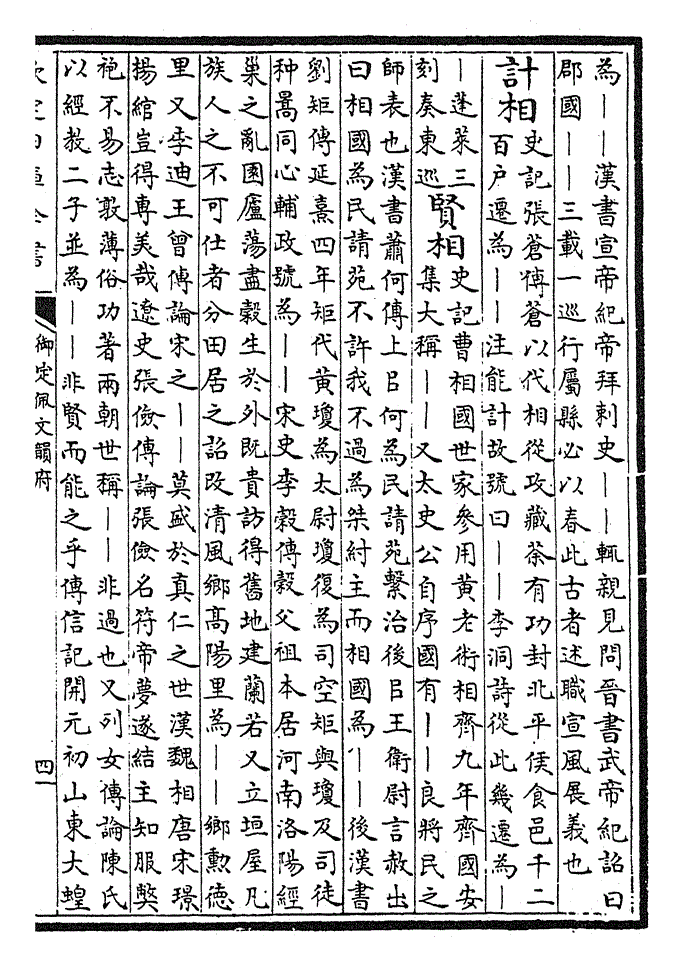 為——漢書宣帝紀帝拜刺史——輒親見問晉書武帝紀詔曰
郡國——三載一巡行屬縣必以春此古者述職宣風展義也
計相
史記張蒼傳蒼以代相從攻藏荼有功封北平侯食邑千二
百户遷為——注能計故號曰——李洞詩從此幾遷為—
—蓬萊三
刻奏東巡
賢相
史記曹相國世家參用黄老術相齊九年齊國安
集大稱——又太史公自序國有——良將民之
師表也漢書蕭何傳上㠯何為民請苑繫治後㠯王衛尉言赦出
曰相國為民請苑不許我不過為桀紂主而相國為——後漢書
劉矩傳延熹四年矩代黄瓊為太尉瓊復為司空矩與瓊及司徒
种暠同心輔政號為——宋史李穀傳穀父祖本居河南洛陽經
巢之亂園廬蕩盡穀生於外既貴訪得舊地建蘭若又立垣屋凡
族人之不可仕者分田居之詔改清風鄉高陽里為——鄉勲德
里又李迪王曾傳論宋之——莫盛於真仁之世漢魏相唐宋璟
楊綰豈得專美哉遼史張儉傳論張儉名符帝夢遂結主知服弊
袍不易志敦薄俗功著兩朝世稱——非過也又列女傳論陳氏
以經教二子並為——非賢而能之乎傳信記開元初山東大蝗
欽定四庫全書
御定佩文韻府
四